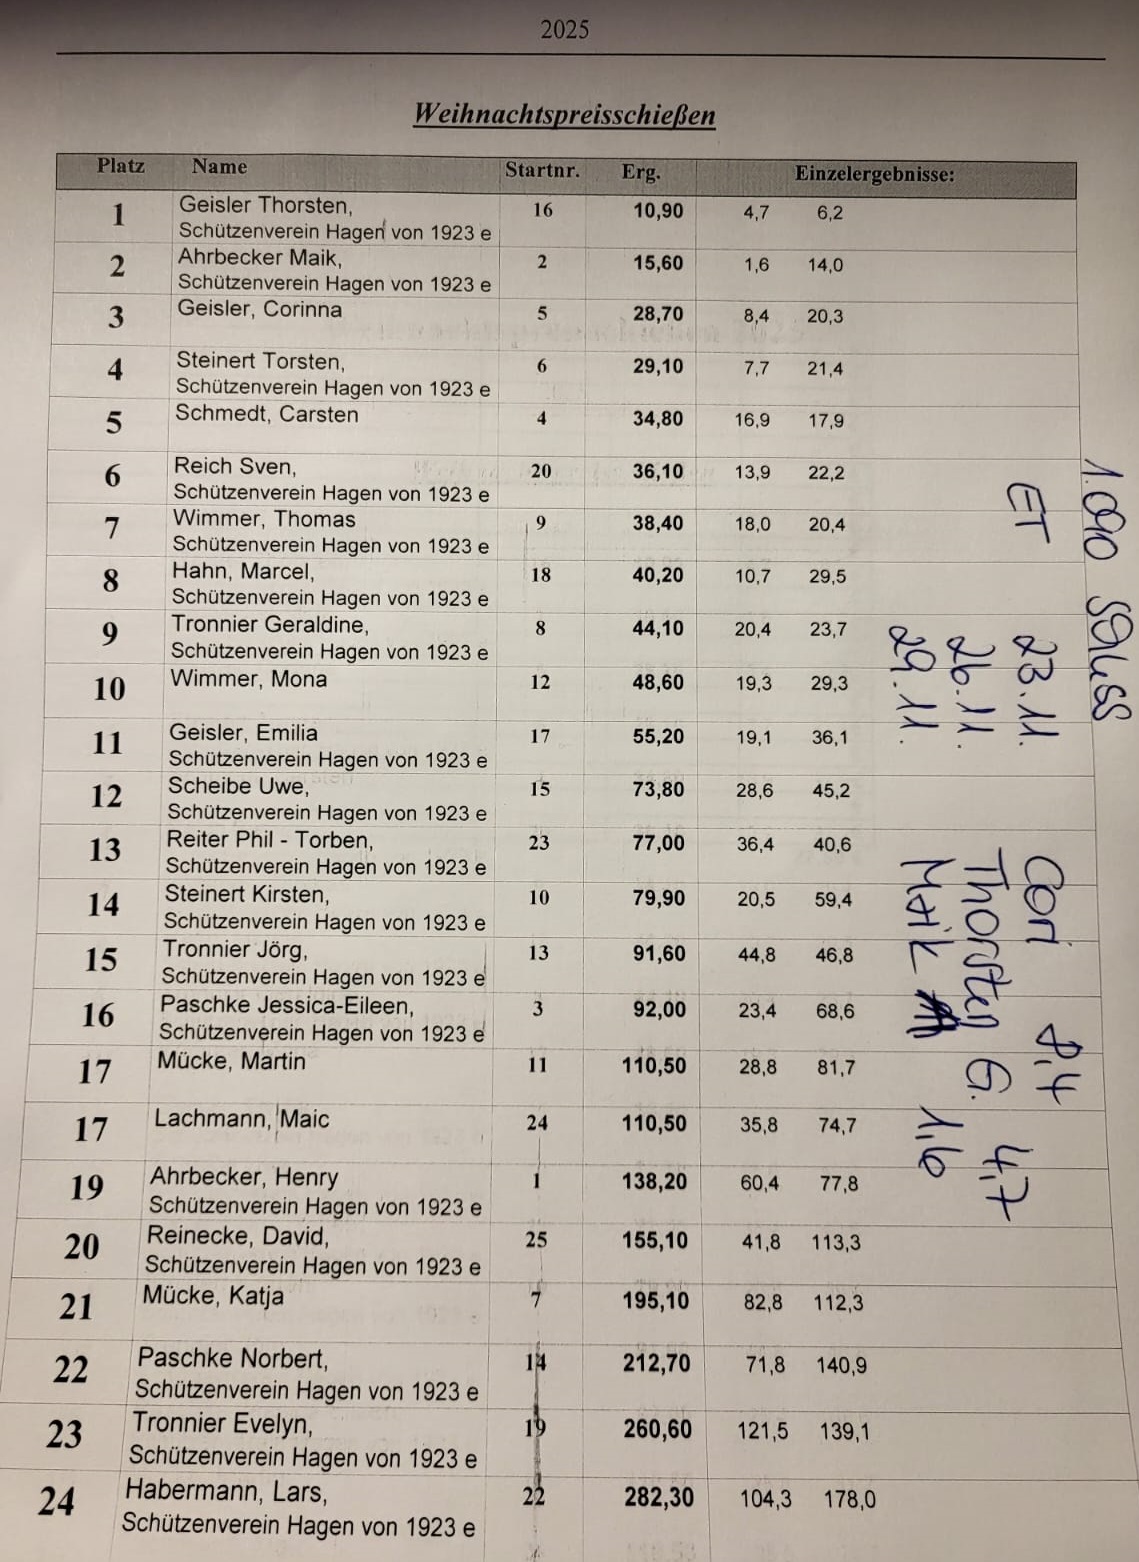 2025
Weihnachtspreisschießen
Platz Name Startnr. Erg. Einzelergebnisse:
1 Geisler Thorsten, 16 10,90 4,7 6,2
Schützenverein Hagen von 1923 e
2 Ahrbecker Maik, 2 15,60 1,6 14,0
Schützenverein Hagen von 1923 e
3 Geisler, Corinna 5 28,70 8,4 20,3
4 Steinert Torsten, 6 29,10 7,7 21,4
Schützenverein Hagen von 1923 e
5 Schmedt, Carsten 4 34,80 16,9 17,9
6 Reich Sven, 20 36,10 13,9 22,2
Schützenverein Hagen von 1923 e
7 Wimmer, Thomas 9 38,40 18,0 20,4
Schützenverein Hagen von 1923 e
8 Hahn, Marcel, 18 40,20 10,7 29,5
Schützenverein Hagen von 1923 e
9 Tronnier Geraldine, 8 44,10 20,4 23,7
Schützenverein Hagen von 1923 e
10 Wimmer, Mona 12 48,60 19,3 29,3
11 Geisler, Emilia 17 55,20 19,1 36,1
Schützenverein Hagen von 1923 e
12 Scheibe Uwe, 15 73,80 28,6 45,2
Schützenverein Hagen von 1923 e
13 Reiter Phil - Torben, 23 77,00 36,4 40,6
Schützenverein Hagen von 1923 e
14 Steinert Kirsten, 10 79,90 20,5 59,4
Schützenverein Hagen von 1923 e
15 Tronnier Jörg, 13 91,60 44,8 46,8
Schützenverein Hagen von 1923 e
16 Paschke Jessica-Eileen, 3 92,00 23,4 68,6
Schützenverein Hagen von 1923 e
17 Mücke, Martin 11 110,50 28,8 81,7
17 Lachmann, Maic 24 110,50 35,8 74,7
19 Ahrbecker, Henry 1 138,20 60,4 77,8
Schützenverein Hagen von 1923 e
20 Reinecke, David, 25 155,10 41,8 113,3
Schützenverein Hagen von 1923 e
21 Mücke, Katja 7 195,10 82,8 112,3
22 Paschke Norbert, 14 212,70 71,8 140,9
Schützenverein Hagen von 1923 e
23 Tronnier Evelyn, 19 260,60 121,5 139,1
Schützenverein Hagen von 1923 e
24 Habermann, Lars, 22 282,30 104,3 178,0
Schützenverein Hagen von 1923 e
1.000 Schuss
ET
23.11.
26.11.
29.11.
Cori 8,4
Thorsten G. 4,7
Maik 1,6